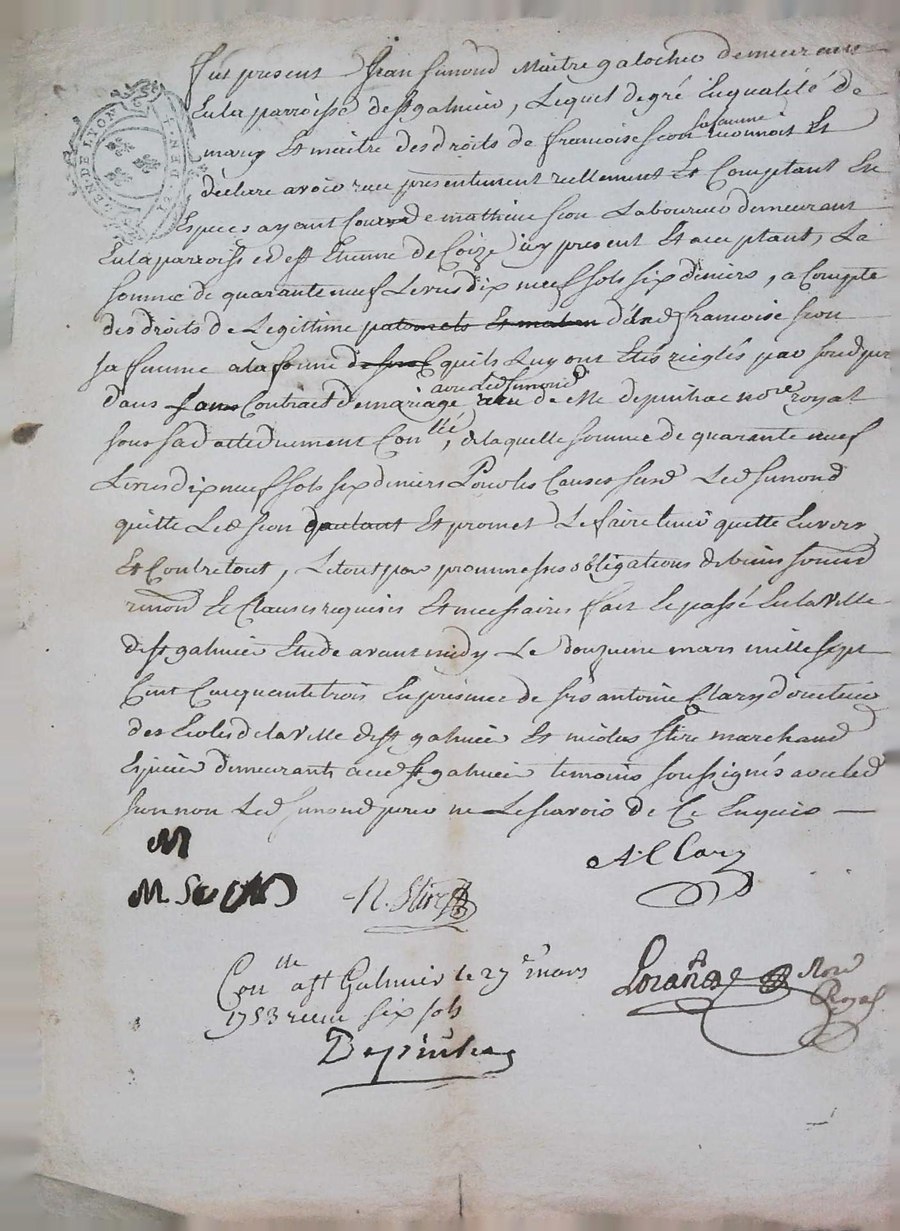 GEN DE LYON
Fut present Jean Simond Maitre galocher demeurant
En la parroisse de st galmier, Lequel de gré En qualité de
mary Et maitre des droits de francoise sion sa femme reconnoit Et
declare avoir receu presentement reellement Et Comptant En
Especes ayant Cours de mathieu sion Laboureur demeurant
En la parroisse de st Etienne de Coize icy present Et acceptant, La
somme de quarante neuf Livres dix neuf sols six deniers, a Compte
des droits de Legittime paternels Et mater de lad francoise sion
sa femme a la forme quils Luy ont Etés reglés par
dans son Contract de mariage avec led Simond receu de Me depinhac nore royal
sous sa datte duement Conllé, de laquelle somme de quarante neuf
Livres dix neuf sols six deniers Pour les Causes susd Led simond
quitte Led sion dautant Et promet Le faire tenir quitte Envers
Et Contre tout, Le tout par promesses obligations de biens soumis
renon Et Clauses requises Et necessaires fait Et passé En la ville
de st galmier Etude avant midy Le douzieme mars mille sept
Cent Cinquante trois En presence de srs antoine Clary directeur
des Ecoles de la ville de st galmier Et nicolas stire marchand
Epicier demeurants aud st galmier temoins soussignés avec led
sion non Led simond pour ne Le scavoir de Ce Enquis
M
M. SION
A. Clary
N. Stire
Conlle a st Galmier le 27e mars
1753 receu six sols
Depinhac
Nore
Royal